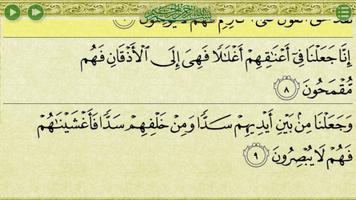 إِنَّا جَعَلْنَا فِىٓ أَعْنَٰقِهِمْ أَغْلَٰلًا فَهِىَ إِلَى ٱلْأَذْقَانِ فَهُم
مُّقْمَحُونَ ٨
وَجَعَلْنَا مِنۢ بَيْنِ أَيْدِيهِمْ سَدًّا وَمِنْ خَلْفِهِمْ سَدًّا فَأَغْشَيْنَٰهُمْ
فَهُمْ لَا يُبْصِرُونَ ٩